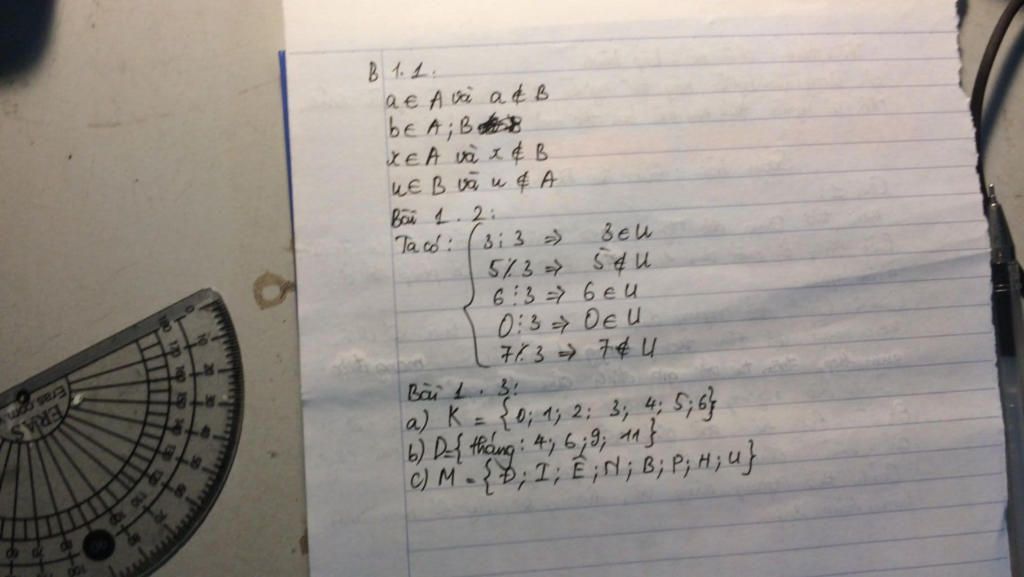 B 1.1:
a ∈ A và a ∉ B
b ∈ A ; B
x ∈ A và x ∉ B
u ∈ B và u ∉ A
Bài 1.2:
Ta có: 3 ⋮ 3 ⇒ 3 ∈ U
5 ⋮̸ 3 ⇒ 5 ∉ U
6 ⋮ 3 ⇒ 6 ∈ U
0 ⋮ 3 ⇒ 0 ∈ U
7 ⋮̸ 3 ⇒ 7 ∉ U
Bài 1.3:
a) K = {0; 1; 2; 3; 4; 5; 6}
b) D = {tháng: 4; 6; 9; 11}
c) M = {Đ; I; Ê; N; B; P; H; U}
ERIAS
Eras.com